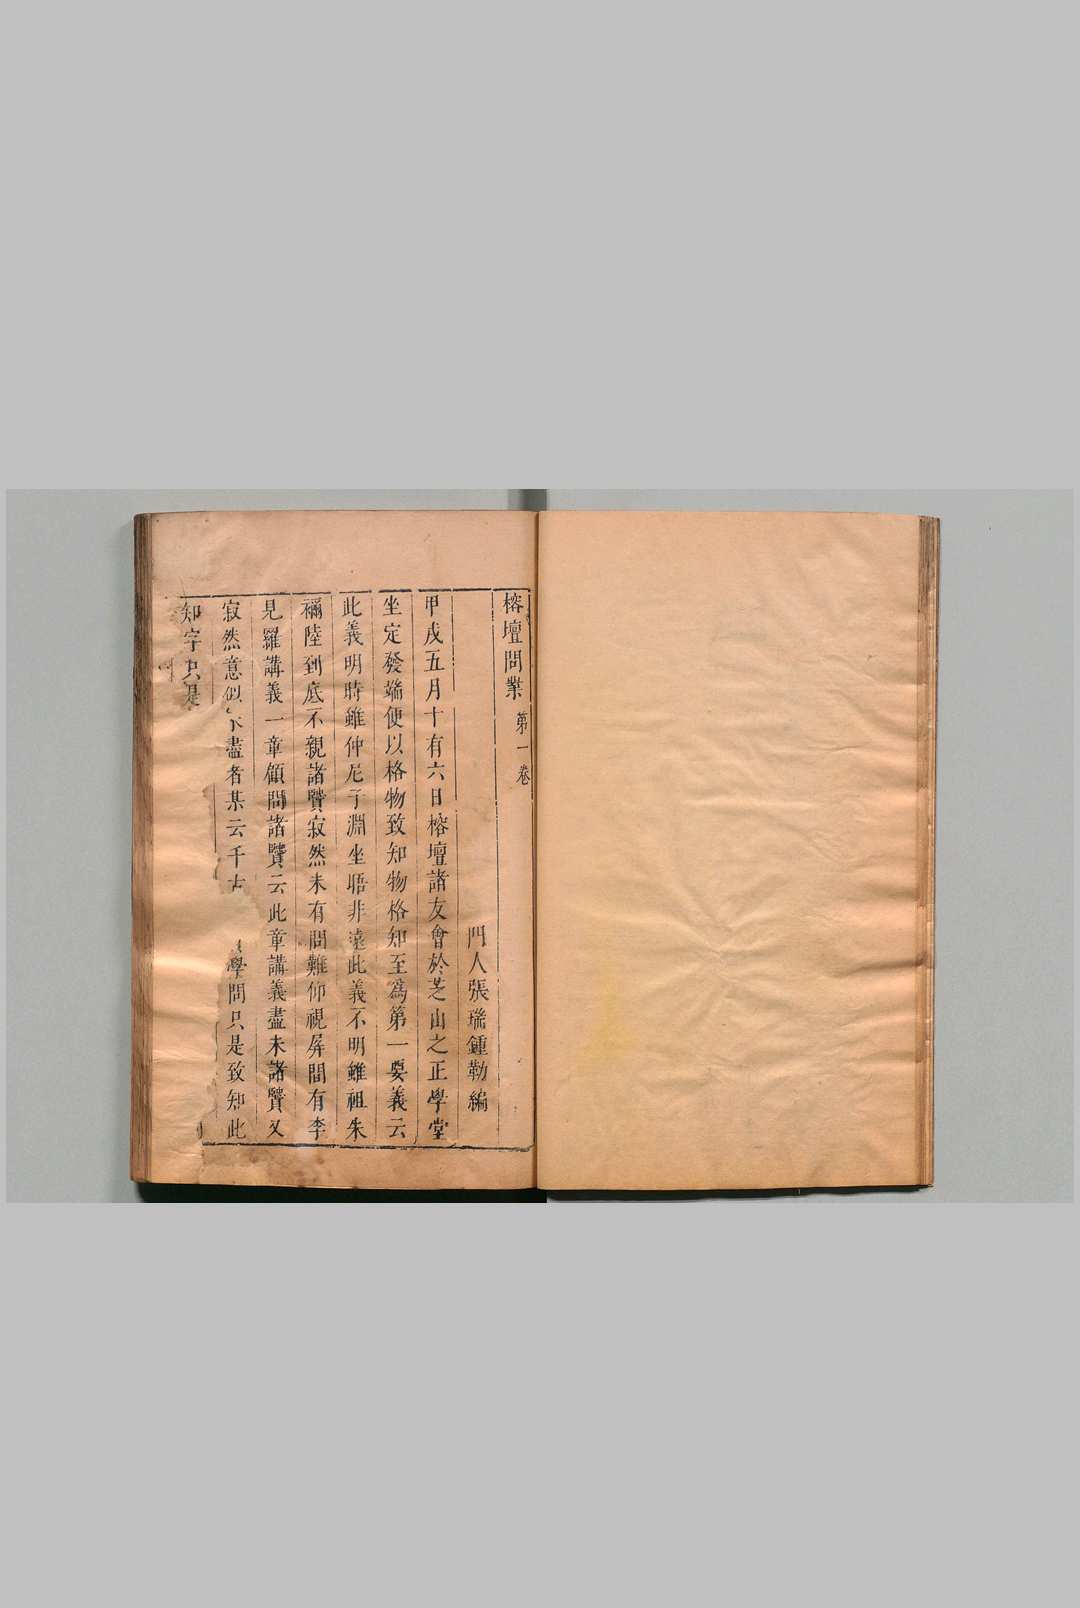 榕壇問業 第一卷
門人張瑞鍾勒編
甲戌五月十有六日榕壇諸友會於芝山之正學堂
坐定發端便以格物致知物格知至爲第一要義云
此義明時雖仲尼子淵坐晤非遠此義不明雖祖朱
禰陸到底不親諸賢寂然未有問難仰視屏間有李
見羅講義一章顧問諸賢云此章講義盡未諸賢又
寂然意似未盡者某云千古學問只是致知此
知字只是